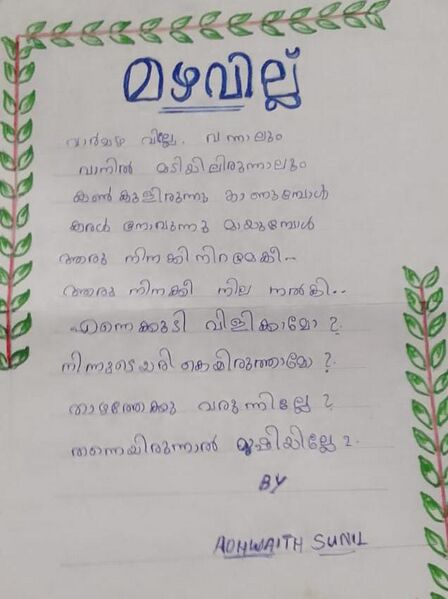 മഴവില്ല്
വാർമഴ വില്ലേ, വന്നാലും
വാനിൽ മടിയിലിരുന്നാലും
കൺകുളിരുന്നു കാണുമ്പോൾ
കരൾ നോവുന്നു മായുമ്പോൾ
ആരു നിനക്കീനിറമേകീ..
ആരു നിനക്കീ നില നൽകി..
എന്നെക്കൂടി വിളിക്കാമോ ?
നിന്നുടെയരികെയിരുത്താമോ ?
താഴത്തേക്കു വരുന്നില്ലേ ?
തന്നെയിരുന്നാൽ മുഷിയില്ലേ ?
BY
ADHWAITH SUNIL